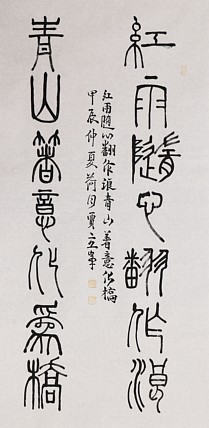 紅雨隨心翻作浪
青山著意化爲橋
紅雨隨心翻作浪青山著意化橋
甲辰仲夏荷月賈